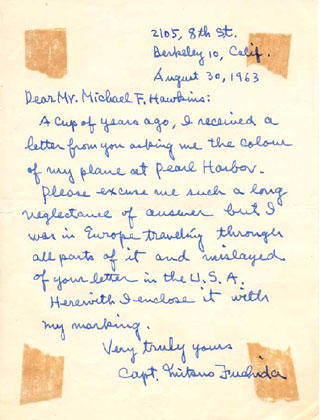 2105, 8th St.
Berkeley 10, Calif.
August 30, 1963
Dear Mr. Michael F. Hawkins:
A cup of years ago, I received a
letter from you asking me the colour
of my plane at Pearl Harbor.
Please excuse me such a long
neglectance of answer but I
was in Europe traveling through
all parts of it and mislayed
of your letter in the U.S.A.
Herewith I enclose it with
my marking.
Very truly yours
Capt. Mitsuo Fuchida